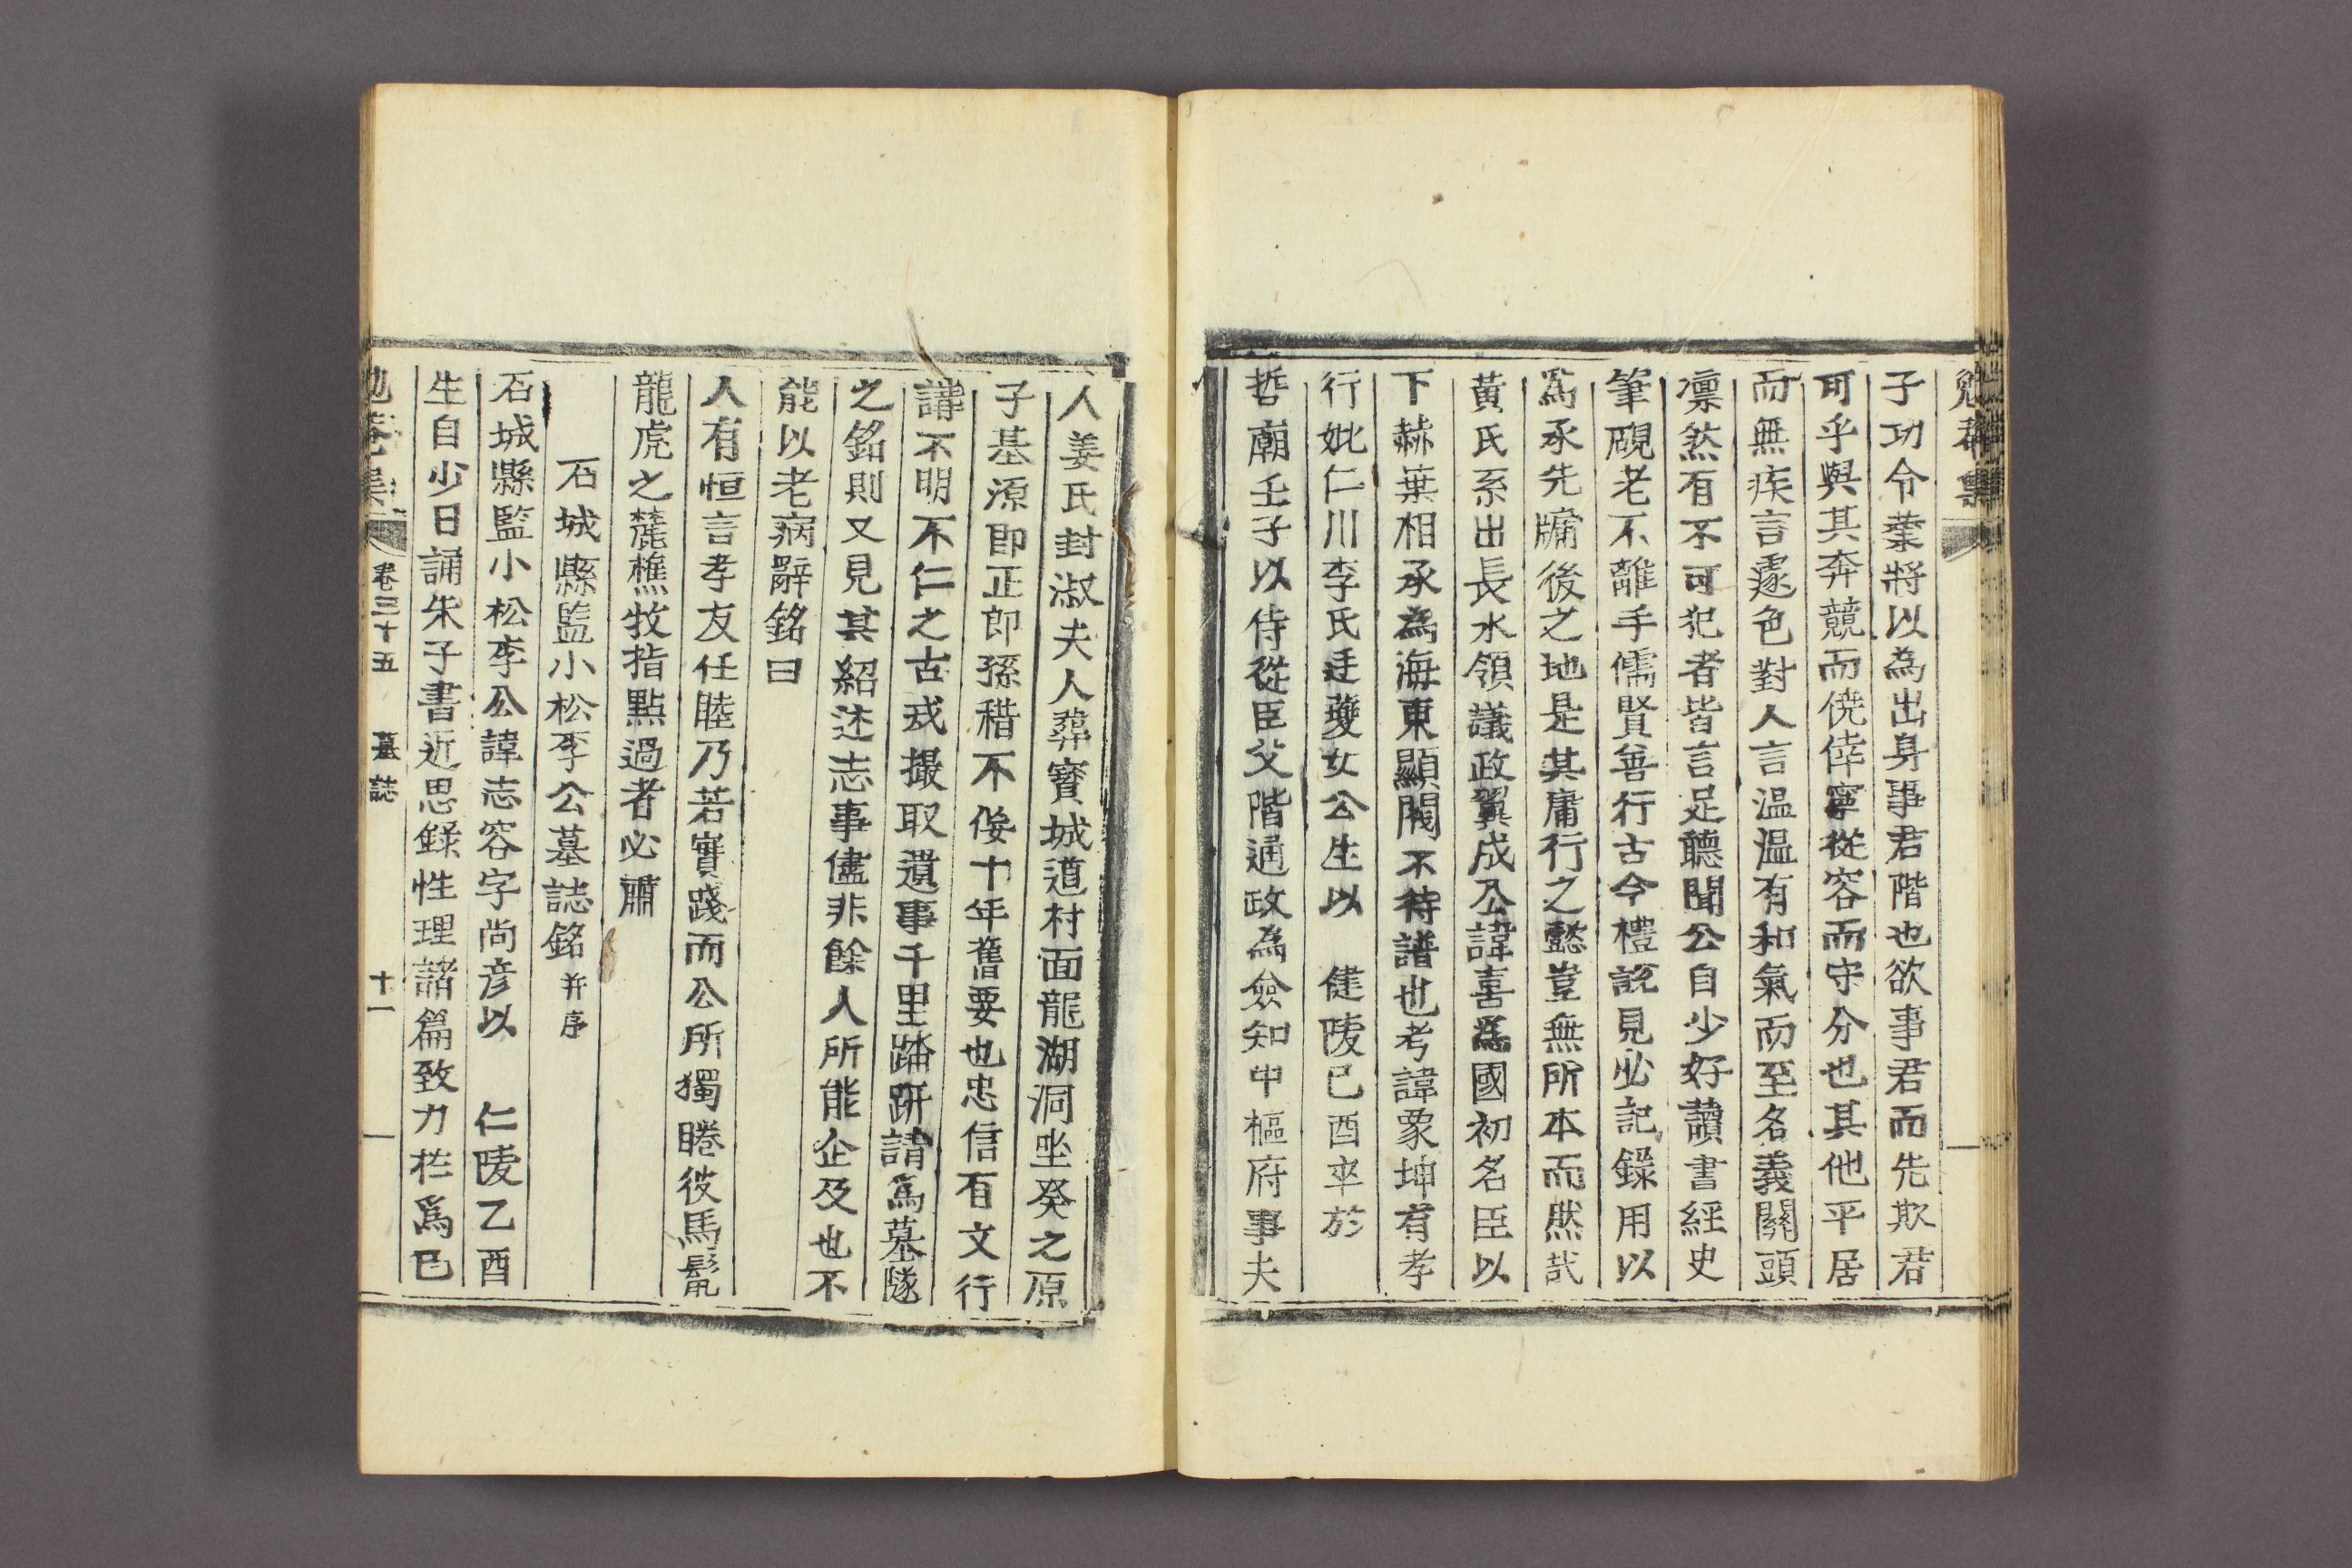 勉菴集
子功令業將以為出身事君階也欲事君而先欺君
可乎與其奔競而僥倖寧從容而守分也其他平居
而無疾言遽色對人言溫溫有和氣而至名義關頭
凜然有不可犯者皆言足聽聞公自少好讀書經史
筆硯老不離手儒賢善行古今禮說見必記錄用以
爲承先牖後之地是其庸行之懿豈無所本而然哉
黃氏系出長水領議政翼成公諱喜爲國初名臣以
下赫葉相承為海東顯閥不待譜也考諱彖坤有孝
行妣仁川李氏廷夔女公生以 健陵己酉卒於
哲廟壬子以侍從臣父階通政為僉知中樞府事夫
人姜氏封淑夫人葬寶城道村面龍湖洞坐癸之原
子基源卽正郎孫稓不侫十年舊要也忠信有文行
講不明不仁之古戒撮取遺事千里踏趼請爲墓隧
之銘則又見其紹述志事儘非餘人所能企及也不
能以老病辭銘曰
人有恒言孝友任睦乃若實踐而公所獨睠彼馬鬣
龍虎之麓樵牧指點過者必肅
石城縣監小松李公墓誌銘 幷序
石城縣監小松李公諱志容字尚彦以 仁陵乙酉
生自少日誦朱子書近思錄性理諸篇致力在爲己
勉菴集 卷三十五 墓誌 十一